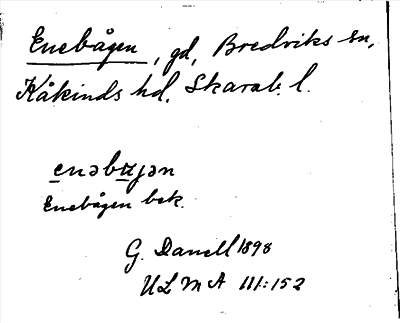 Enebågen, gd, Bredviks sn,
Kåkinds hd. Skarab. l.
Enebågen bek.
G. Danell 1898
ULMA 111:152